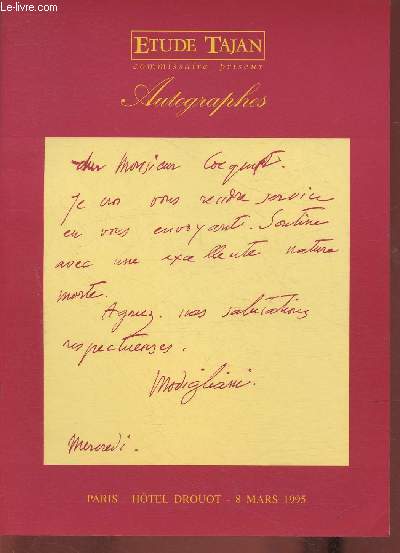 Le-livre.com
ETUDE TAJAN
commissaire priseur
Autographes
cher Monsieur Cocquiot.
Je crois vous rendre service
en vous envoyant. Soutine
avec une excellente nature
morte.
Agréez. nos salutations
respectueuses.
Modigliani.
Mercredi.
PARIS - HÔTEL DROUOT - 8 MARS 1995